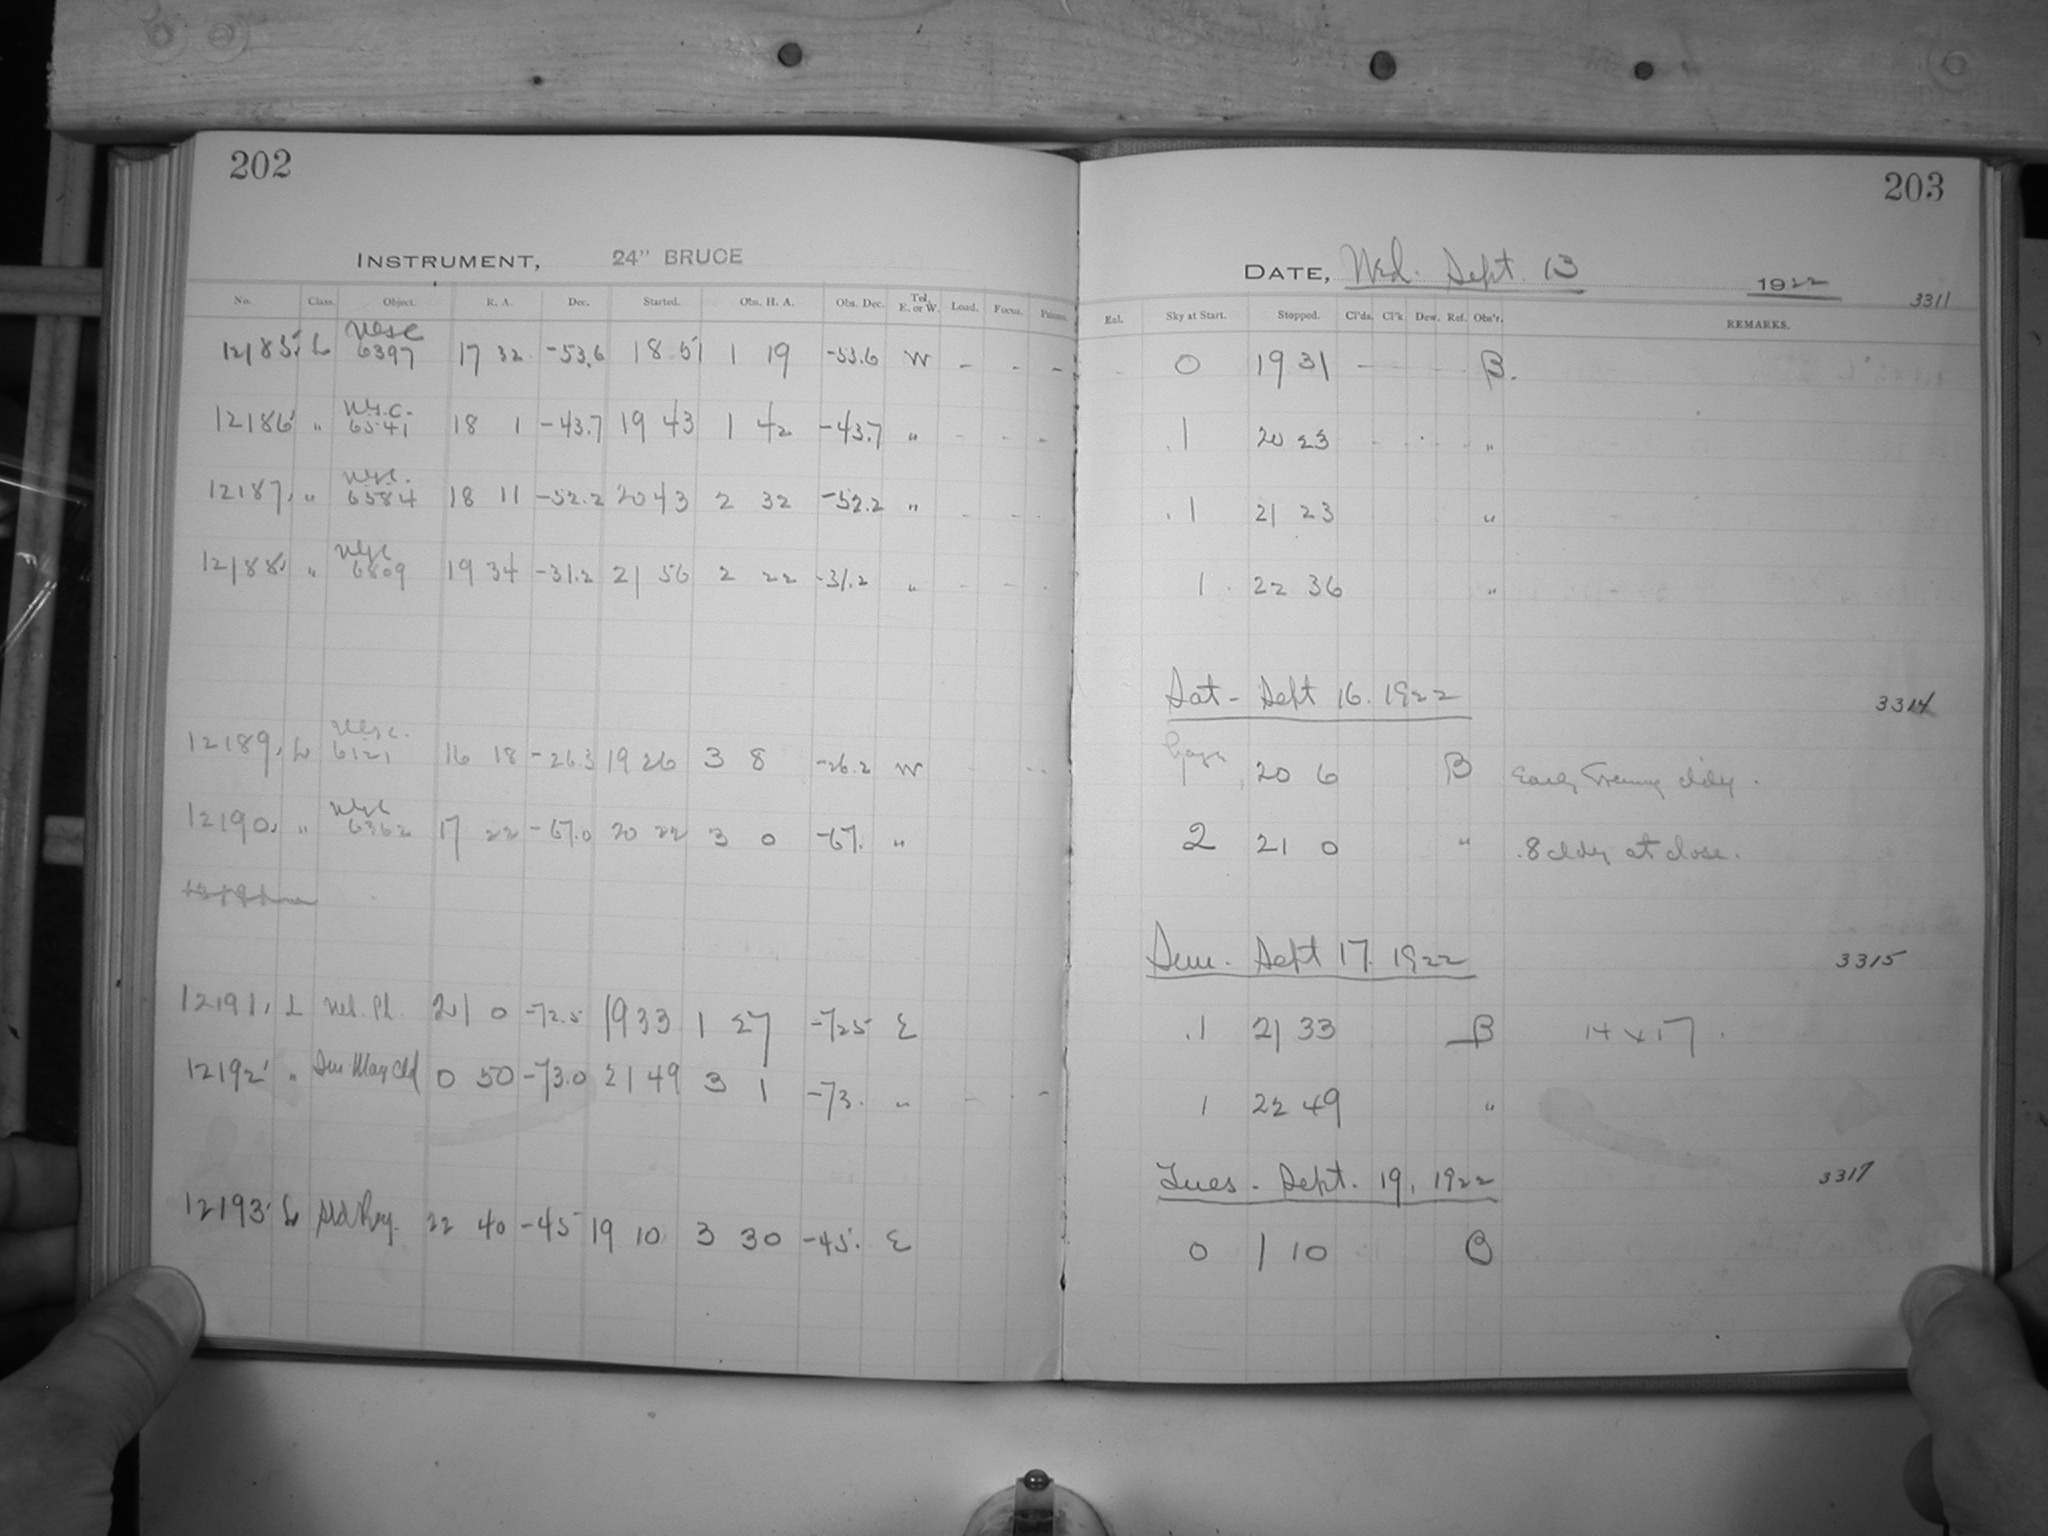 202
INSTRUMENT, 24" BRUCE
No. Class. Object. R. A. Dec. Started. Obs. H. A. Obs. Dec. Tel. E. or W. Load. Focus.
12185 L N.G.C. 6397 17 32 -53.6 18 51 1 19 -53.6 W - - -
12186 " N.G.C. 6541 18 1 -43.7 19 43 1 42 -43.7 " - - -
12187 " N.G.C. 6584 18 11 -52.2 20 43 2 32 -52.2 " - - -
12188 " N.G.C. 6809 19 34 -31.2 21 56 2 22 -31.2 " - - -
12189 L N.G.C. 6121 16 18 -26.3 19 26 3 8 -26.2 W
12190 " N.G.C. 6362 17 22 -67.0 20 22 3 0 -67. "
12191 L Neb. Pl. 21 0 -72.5 19 33 1 27 -72.5 E
12192 " Sm. Mag Cld 0 50 -73.0 21 49 3 1 -73. "
12193 L Std Reg. 22 40 -45 19 10 3 30 -45. E
203
DATE, Wed. Sept. 13 1922
3311
Exl. Sky at Start. Stopped. Cl'ds. Cl'k Dew. Ref. Obs'r. REMARKS.
0 19 31 - - - B.
.1 20 23 - - - "
.1 21 23 "
1 22 36 "
Sat - Sept 16. 1922 3314
1 20 6 B Early Evening cldy.
2 21 0 " .8 cldy at close.
Sun. Sept 17. 1922 3315
.1 21 33 B 14 x 17.
1 22 49 "
Tues. Sept. 19, 1922 3317
0 1 10 B